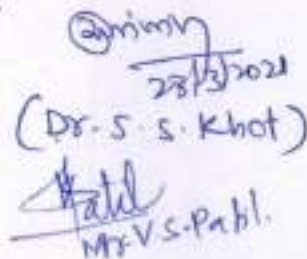 23/3/2021
(Dr. S. S. Khot)
Patil
Mr. V. S. Patil.